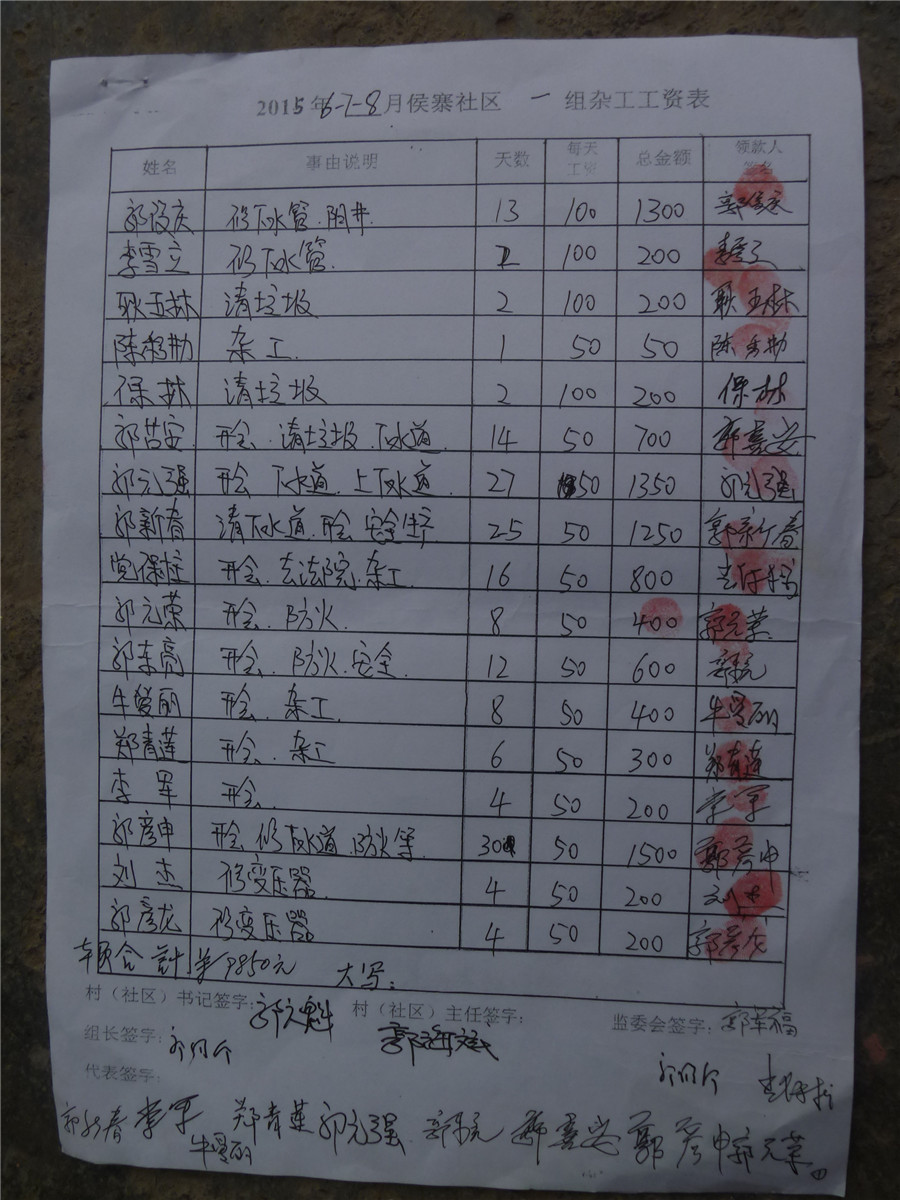 2015年6-7-8月侯寨社区 一 组杂工工资表
姓名 事由说明 天数 每天工资 总金额 领款人签名
郭俊庆 修下水管.阴井 13 100 1300
李雪立 修下水管 2 100 200
耿玉林 清垃圾 2 100 200 耿玉林
陈秀勤 杂工. 1 50 50 陈秀勤
保林 清垃圾 2 100 200 保林
开会.清垃圾.下水道. 14 50 700 郭喜安
郭元强 开会 下水道.上下水道. 27 50 1350 郭元强
郭新春 清下水道.开会.安全生产 25 50 1250 郭新春
党保柱 开会.去法院.杂工 16 50 800
郭元荣 开会.防火. 8 50 400 郭元荣
郭东亮 开会.防火.安全 12 50 600
牛爱丽 开会.杂工. 8 50 400 牛爱丽
郑青莲 开会.杂工 6 50 300 郑青莲
李军 开会. 4 50 200 李军
郭彦申 开会.修下水道.防火等. 30 50 1500 郭彦申
刘杰 修变压器. 4 50 200 刘杰
郭彦龙 修变压器 4 50 200 郭彦龙
合计 ¥9850元 大写:
村（社区）书记签字: 村（社区）主任签字: 监委会签字:
组长签字:
代表签字:
郭新春 李军 郑青莲 郭元强 郭喜安 郭彦申 郭元荣
牛爱丽